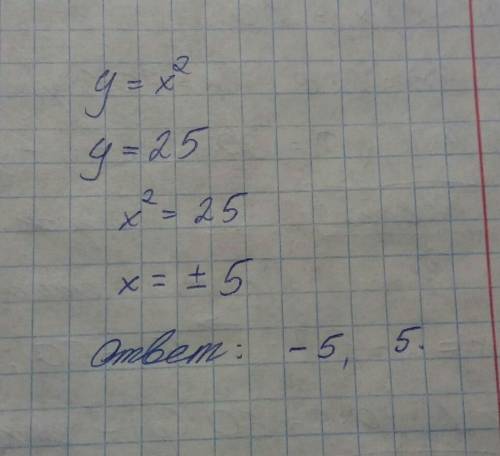 y = x²
y = 25
x² = 25
x = ± 5
Ответ: -5, 5.